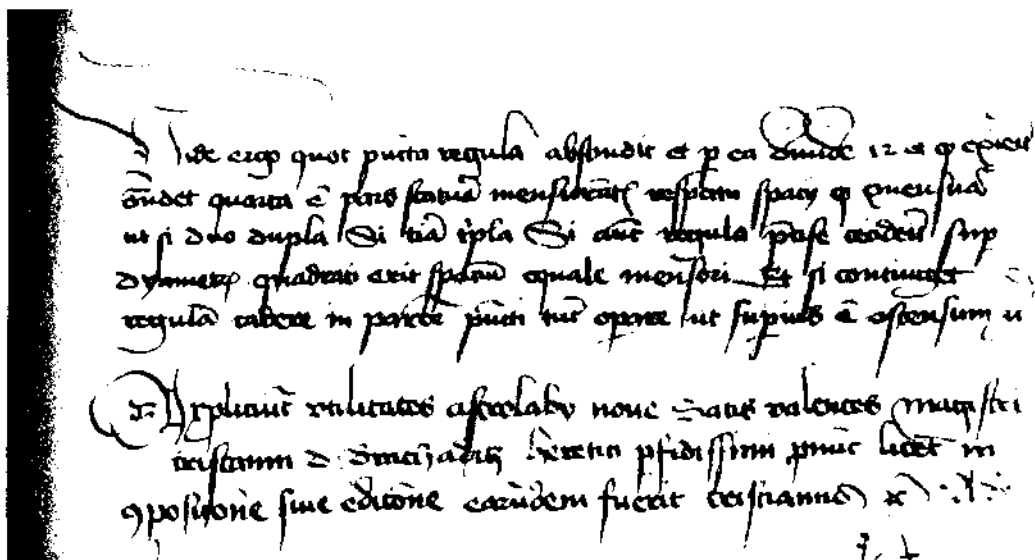 Vide ergo quot puncta regula abscindit et p ea divide 12 et q exierit
ondet quarta e pars statura mensurat respectu spacy q mensura
ut si duo dupla Si tria tpla Si aut regula pcise ceciderit sup
dyametr quadrati erit spatiu equale mensori Et si contingeret
regula cadere in parte puncti tuc opare ut supius e ostensum
Expliciut utilitates astrolaby nove satis valentes magistri
cristanni d heretici pfidissimi pnuc licet in
9posicione sive edicone earundem fuerit cristianus